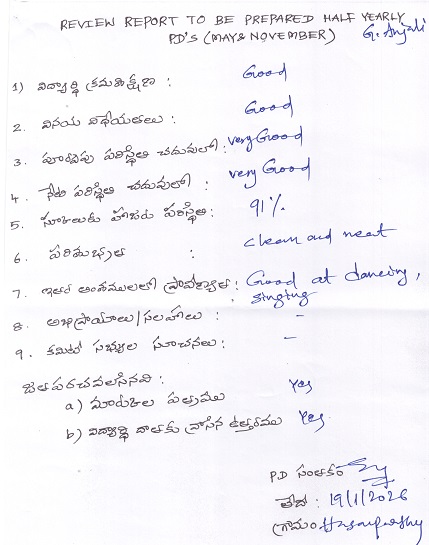 REVIEW REPORT TO BE PREPARED HALF YEARLY
P.D'S (MAY & NOVEMBER) G. Anjali
1) విద్యార్థి క్రమశిక్షణ : Good
2. వినయ విధేయతలు : Good
3. పూర్వపు పరిస్థితి చదువులో : very Good
4. నేటి పరిస్థితి చదువులో : very Good
5. స్కూలుకు హాజరు పరిస్థితి : 91%
6. పరిశుభ్రత : clean and neat
7. ఇతర అంశములలో ప్రావీణ్యత : Good at dancing,
singing
8. అభిప్రాయాలు/సలహాలు : -
9. కమిటి సభ్యుల సూచనలు : -
జతపరచవలసినవి :
a) మార్కుల పత్రము Yes
b) విద్యార్థి దాతకు వ్రాసిన ఉత్తరము Yes
P.D సంతకం
తేది : 19/1/2026
గ్రామం